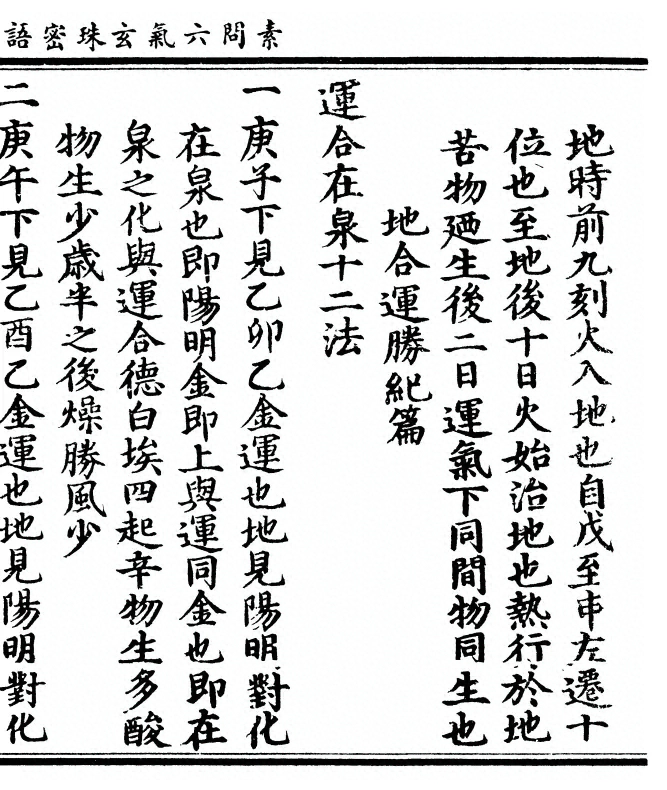 素問六氣玄珠密語
地時前九刻火入地也自戊至申左遷十
位也至地後十日火始治地也熱行於地
苦物廼生後二日運氣下同間物同生也
地合運勝紀篇
運合在泉十二法
一庚子下見乙卯乙金運也地見陽明對化
在泉也即陽明金即上與運同金也即在
泉之化與運合德白埃四起辛物生多酸
物生少歲半之後燥勝風少
二庚午下見乙酉乙金運也地見陽明對化